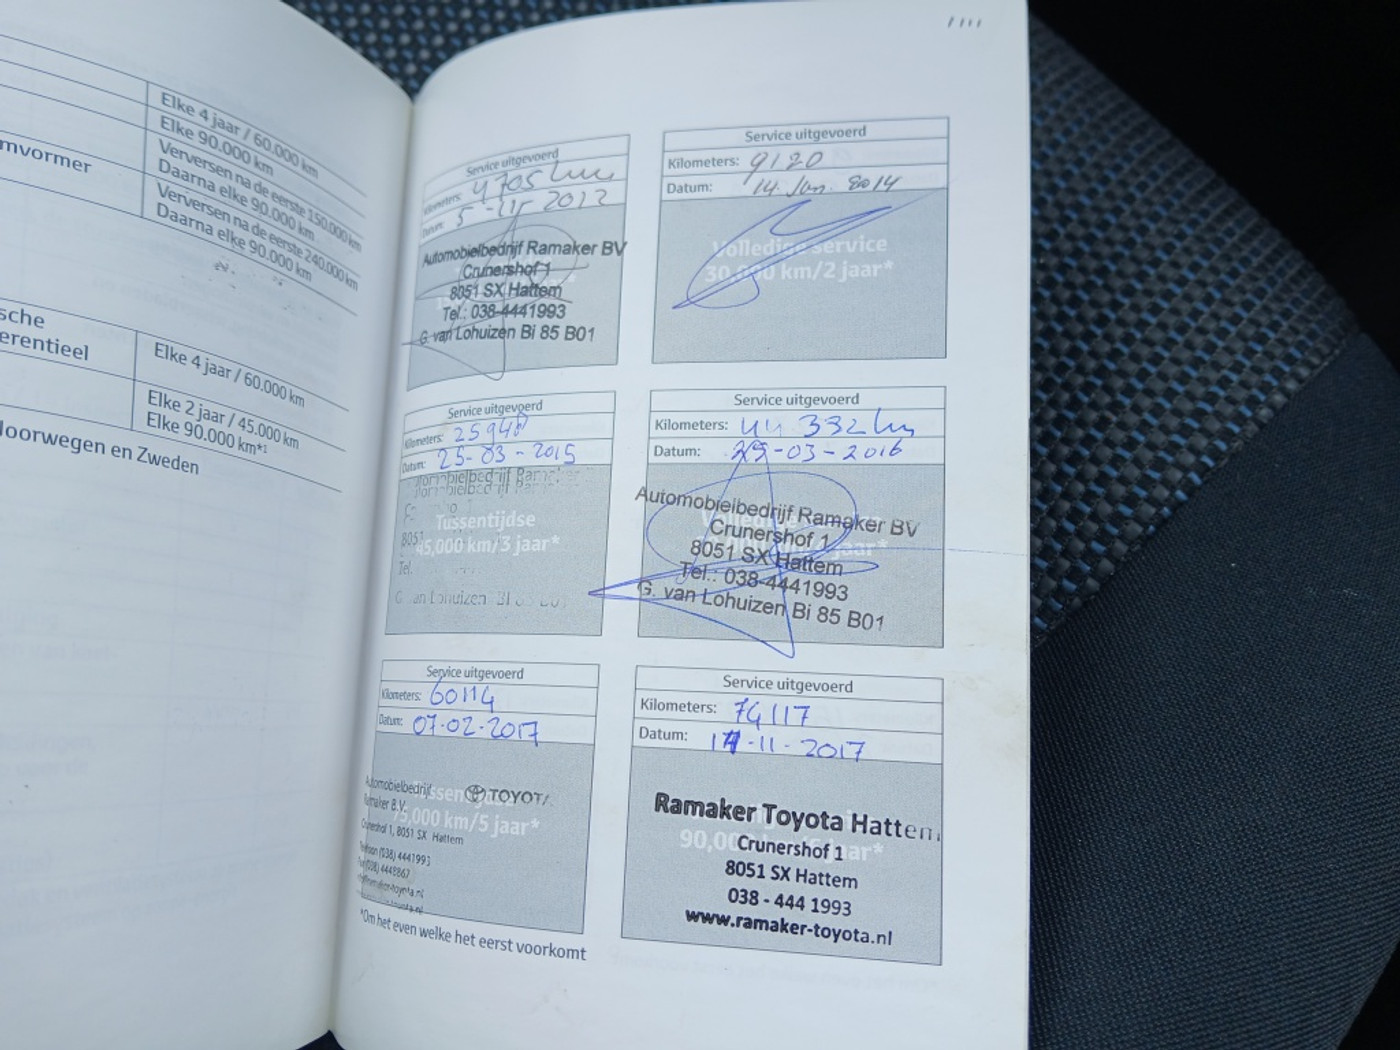 Elke 4 jaar / 60.000 km
Elke 90.000 km
Verversen na de eerste 150.000 km
Daarna elke 90.000 km
mvormer
Verversen na de eerste 240.000 km
Daarna elke 90.000 km
sche
erentieel
Elke 4 jaar / 60.000 km
Elke 2 jaar / 45.000 km
Elke 90.000 km*¹
loorwegen en Zweden
Service uitgevoerd
Kilometers: 4705 km
Datum: 5 - 2012
Automobielbedrijf Ramaker BV
Crunershof 1
8051 SX Hattem
Tel.: 038-4441993
G. van Lohuizen Bi 85 B01
Service uitgevoerd
Kilometers: 9120
Datum: 14 Jan. 2014
Volledige service
30,000 km/2 jaar*
Service uitgevoerd
Kilometers: 25948
Datum: 25-03-2015
Tussentijdse
45,000 km/3 jaar*
8051
Tel.
Service uitgevoerd
Kilometers: 44 332 km
Datum: 29-03-2016
Automobielbedrijf Ramaker BV
Crunershof 1
8051 SX Hattem
Tel.: 038-4441993
G. van Lohuizen Bi 85 B01
Service uitgevoerd
Kilometers: 60114
Datum: 07-02-2017
Automobielbedrijf TOYOTA
Ramaker B.V.
75,000 km/5 jaar*
Crunershof 1, 8051 SX Hattem
Telefoon (038) 4441993
*Om het even welke het eerst voorkomt
Service uitgevoerd
Kilometers: 74117
Datum: 14-11-2017
Ramaker Toyota Hattem
90,000 km/6 jaar*
Crunershof 1
8051 SX Hattem
038 - 444 1993
www.ramaker-toyota.nl